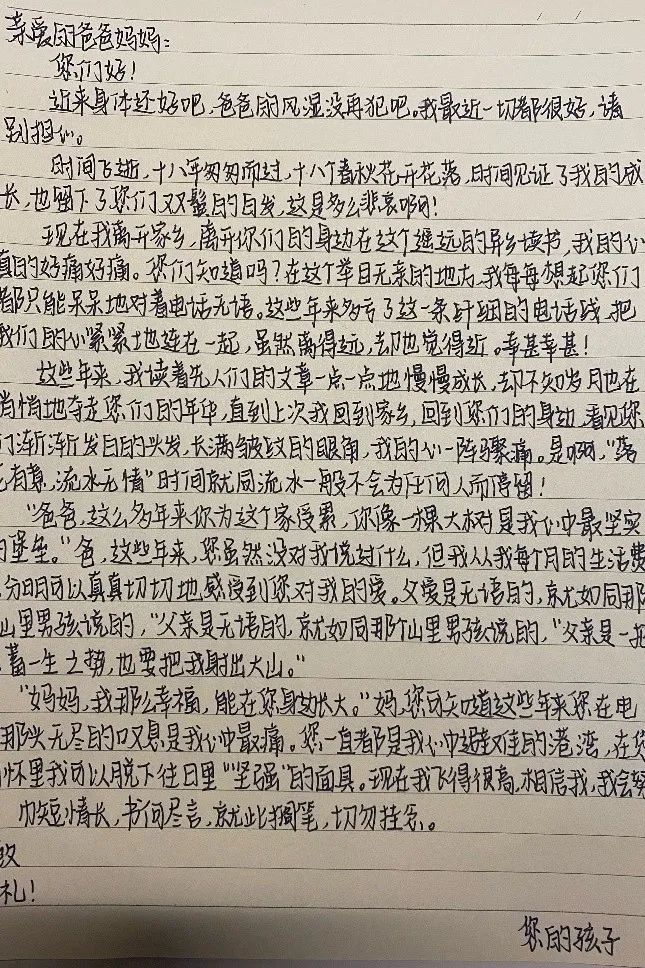 亲爱的爸爸妈妈：
您们好！
近来身体还好吧，爸爸的风湿没再犯吧。我最近一切都很好，请
别担心。
时间飞逝，十八年匆匆而过，十八个春秋花开花落，时间见证了我的成
长，也留下了您们双鬓的白发，这是多么悲哀啊！
现在我离开家乡，离开你们的身边在这个遥远的异乡读书，我的心
真的好痛好痛。您们知道吗？在这个举目无亲的地方，我每每想起您们
都只能呆呆地对着电话无语。这些年来多亏了这一条纤细的电话线，把
我们的心紧紧地连在一起，虽然离得远，却也觉得近。幸甚幸甚！
这些年来，我读着先人们的文章一点一点地慢慢成长，却不知岁月也在
悄悄地夺走您们的年华，直到上次我回到家乡，回到您们的身边，看见您
们渐渐发白的头发，长满皱纹的眼角，我的心一阵骤痛。是啊，"落
花有意，流水无情"时间就同流水一般不会为任何人而停留！
"爸爸，这么多年来你为这个家受累，你像一棵大树是我心中最坚实
的堡垒。"爸，这些年来，您虽然没对我说过什么，但我从我每个月的生活费
，分明可以真真切切地感受到您对我的爱。父爱是无语的，就尤如同那
山里男孩说的，"父亲是无语的，就尤如同那个山里男孩说的，"父亲是一把
，蓄一生之势，也要把我射出大山。"
"妈妈，我那么幸福，能在您身边长大。"妈，您可知道这些年来您在电
那头无尽的叹息是我心中最痛。您一直都是我心中绝佳的港湾，在您
怀里我可以脱下往日里"坚强"的面具。现在我飞得很高，相信我，我会努
巾短情长，书何尽言，就此搁笔，切勿挂念。
致
礼！
您的孩子